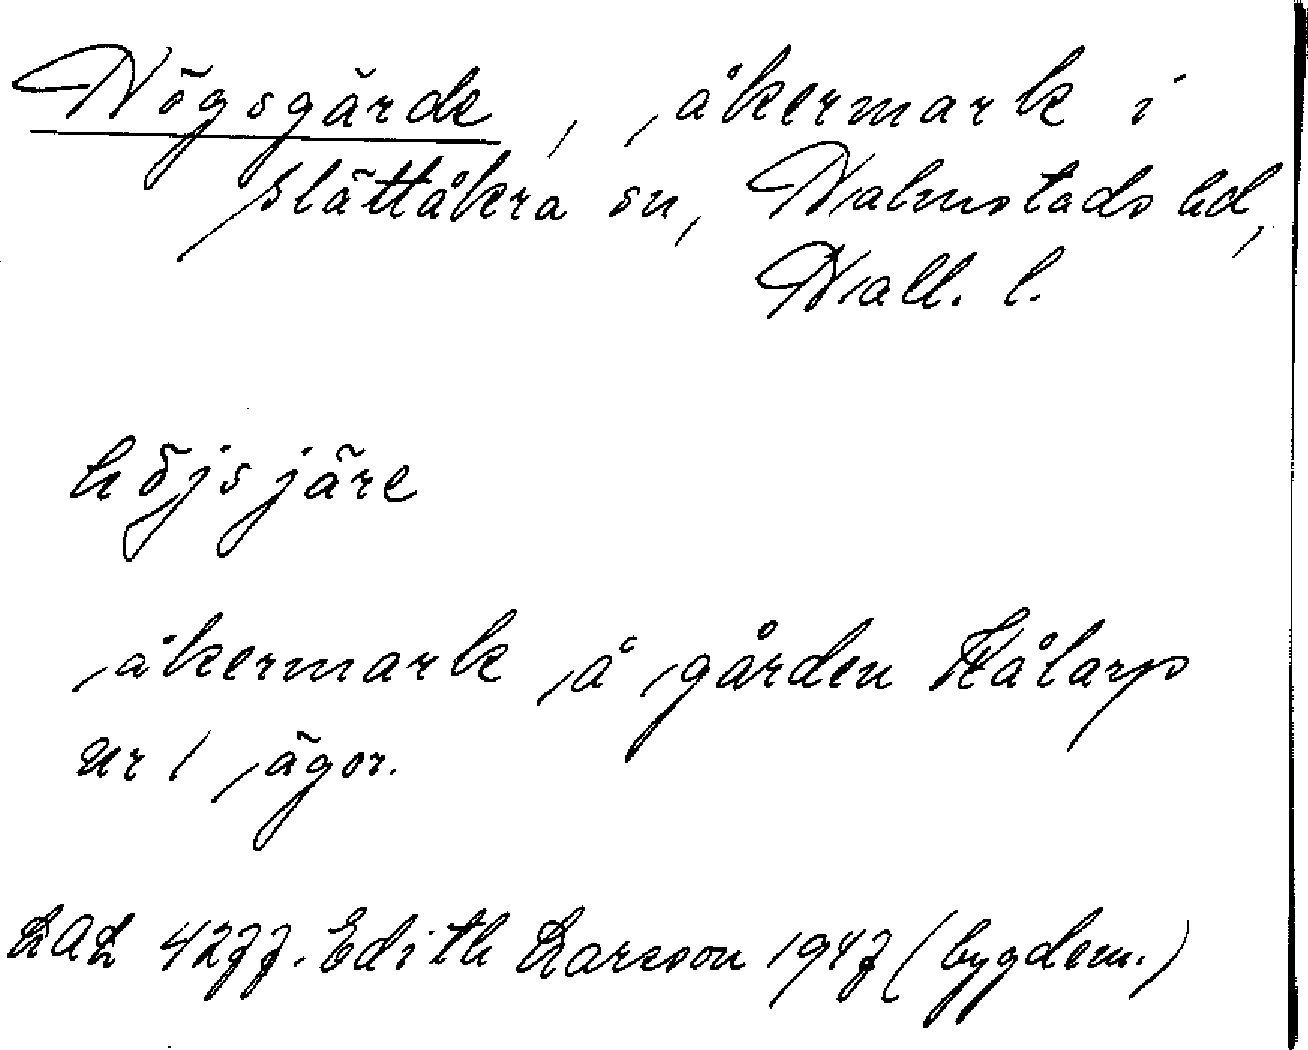 Högsgärde, åkermark i
Slättåkra sn, Halmstads hd,
Hall. l.
höjsjäre
åkermark å gården Kålarp
nr 1 ägor.
LAL 4277. Edith Larsson 1947 (bygdem.)